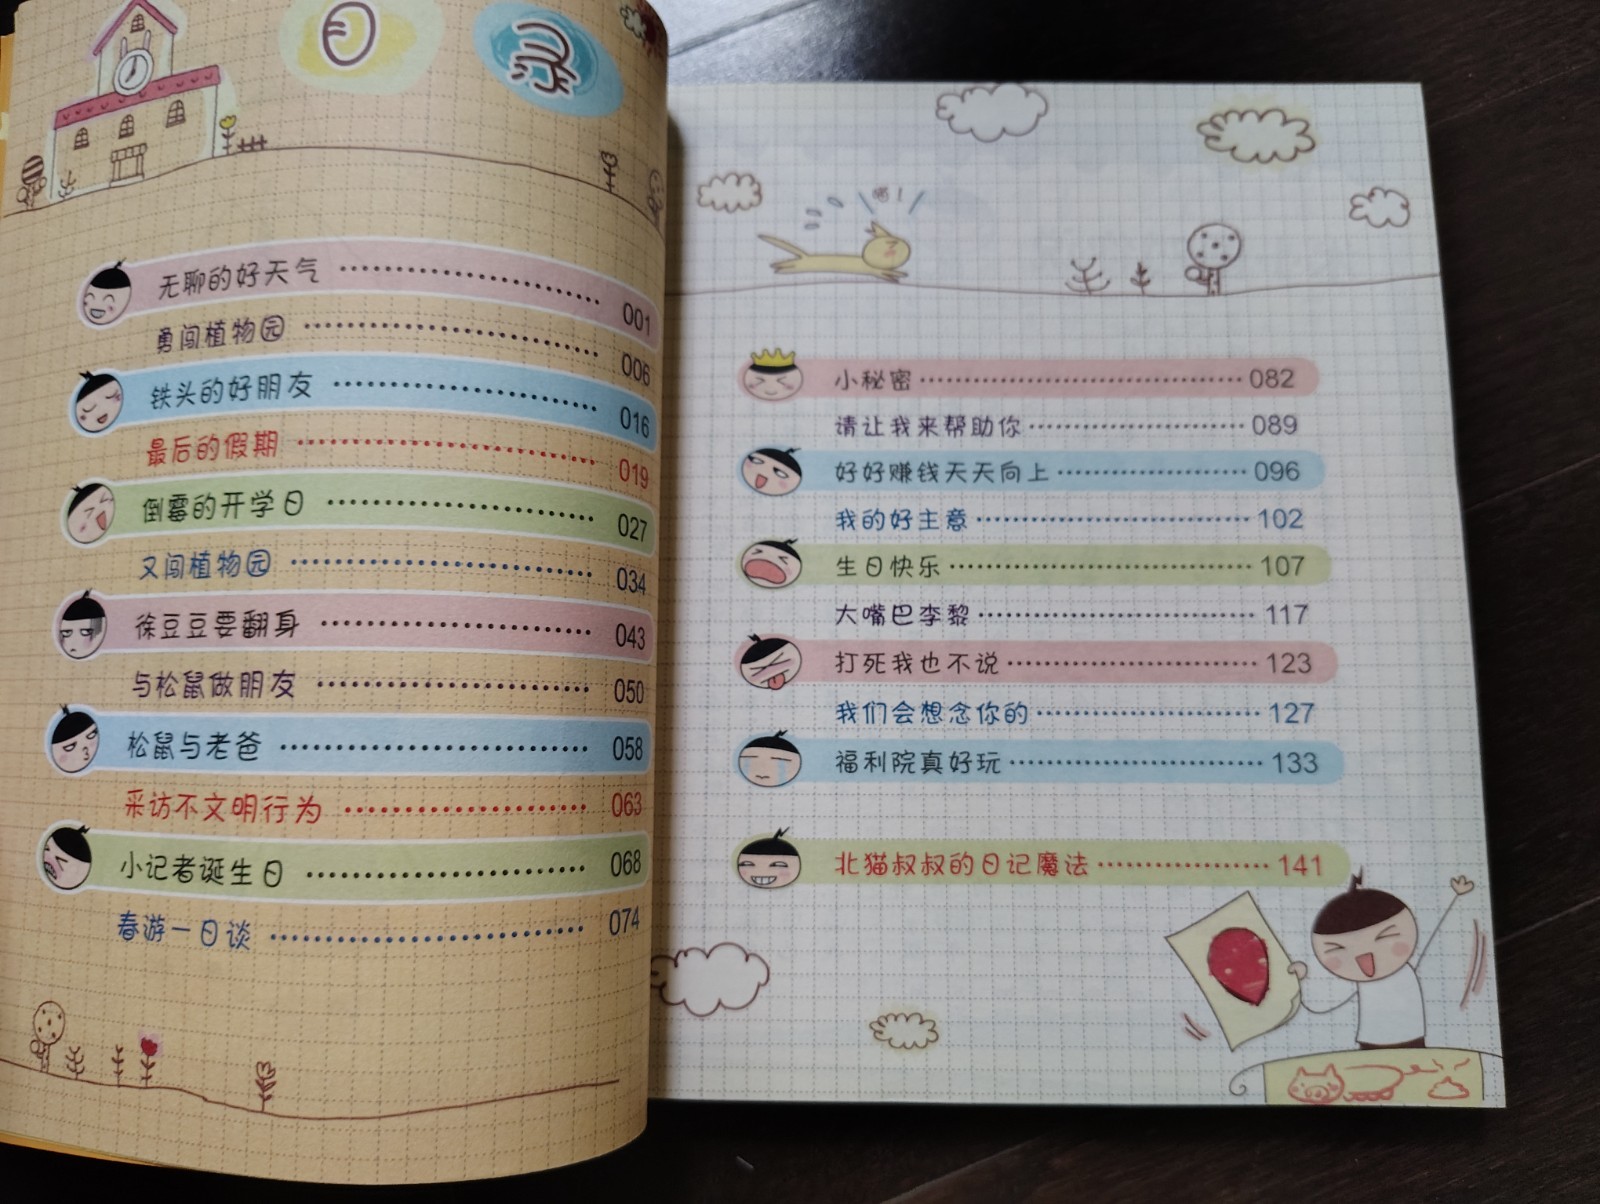 目录
无聊的好天气 ………… 001
勇闯植物园 ………… 006
铁头的好朋友 ………… 016
最后的假期 ………… 019
倒霉的开学日 ………… 027
又闯植物园 ………… 034
徐豆豆要翻身 ………… 043
与松鼠做朋友 ………… 050
松鼠与老爸 ………… 058
采访不文明行为 ………… 063
小记者诞生日 ………… 068
春游一日谈 ………… 074
小秘密 ………… 082
请让我来帮助你 ………… 089
好好赚钱天天向上 ………… 096
我的好主意 ………… 102
生日快乐 ………… 107
大嘴巴李黎 ………… 117
打死我也不说 ………… 123
我们会想念你的 ………… 127
福利院真好玩 ………… 133
北猫叔叔的日记魔法 ………… 141